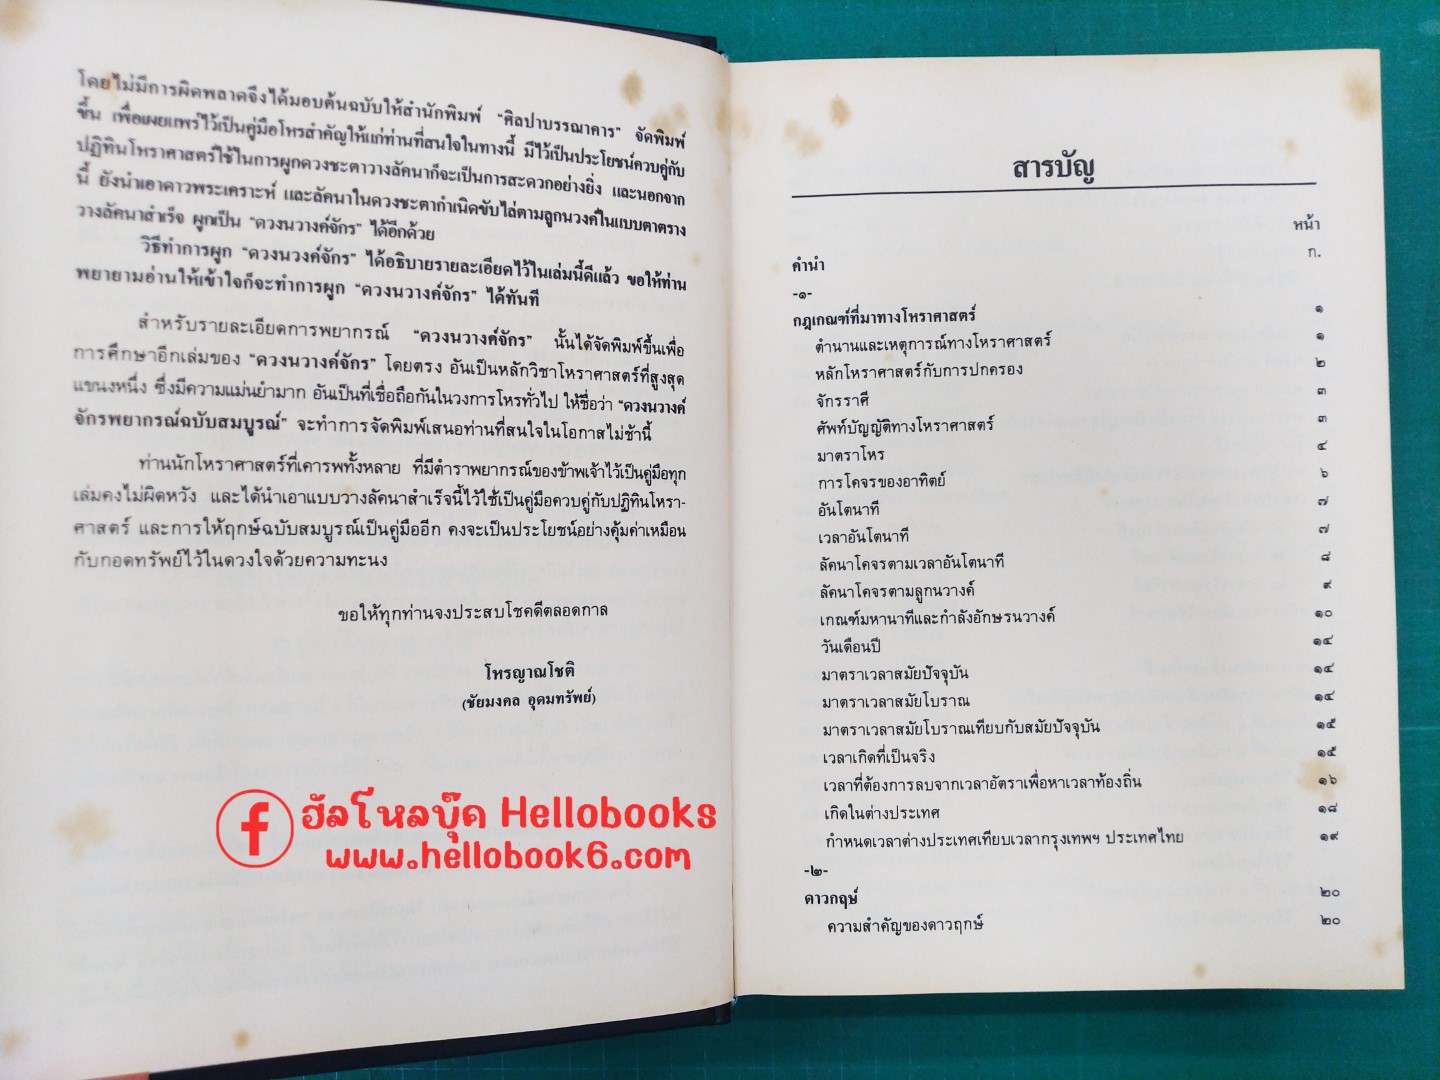 โดยไม่มีการผิดพลาดจึงได้มอบต้นฉบับให้สำนักพิมพ์ “ศิลปาบรรณาคาร” จัดพิมพ์
ขึ้น เพื่อเผยแพร่ไว้เป็นคู่มือโหรสำคัญให้แก่ท่านที่สนใจในทางนี้ มีไว้เป็นประโยชน์ควบคู่กับ
ปฏิทินโหราศาสตร์ใช้ในการผูกดวงชะตาวางลัคนาก็จะเป็นการสะดวกอย่างยิ่ง และนอกจาก
นี้ ยังนำเอาดาวพระเคราะห์ และลัคนาในดวงชะตากำเนิดขับไล่ตามลูกนวงค์ในแบบตาตราง
วางลัคนาสำเร็จ ผูกเป็น “ดวงนวางค์จักร” ได้อีกด้วย
วิธีทำการผูก “ดวงนวงค์จักร” ได้อธิบายรายละเอียดไว้ในเล่มนี้ดีแล้ว ขอให้ท่าน
พยายามอ่านให้เข้าใจก็จะทำการผูก “ดวงนวางค์จักร” ได้ทันที
สำหรับรายละเอียดการพยากรณ์ “ดวงนวางค์จักร” นั้นได้จัดพิมพ์ขึ้นเพื่อ
การศึกษาอีกเล่มของ “ดวงนวางค์จักร” โดยตรง อันเป็นหลักวิชาโหราศาสตร์ที่สูงสุด
แขนงหนึ่ง ซึ่งมีความแม่นยำมาก อันเป็นที่เชื่อถือกันในวงการโหรทั่วไป ให้ชื่อว่า “ดวงนวางค์
จักรพยากรณ์ฉบับสมบูรณ์” จะทำการจัดพิมพ์เสนอท่านที่สนใจในโอกาสไม่ช้านี้
ท่านนักโหราศาสตร์ที่เคารพทั้งหลาย ที่มีตำราพยากรณ์ของข้าพเจ้าไว้เป็นคู่มือทุก
เล่มคงไม่ผิดหวัง และได้นำเอาแบบวางลัคนาสำเร็จนี้ไว้ใช้เป็นคู่มือควบคู่กับปฏิทินโหรา-
ศาสตร์ และการให้ฤกษ์ฉบับสมบูรณ์เป็นคู่มืออีก คงจะเป็นประโยชน์อย่างคุ้มค่าเหมือน
กับกอดทรัพย์ไว้ในดวงใจด้วยความทะนง
ขอให้ทุกท่านจงประสบโชคดีตลอดกาล
โหรญาณโชติ
(ชัยมงคล อุดมทรัพย์)
ฮัลโหลบุ๊ค Hellobooks
www.hellobook6.com
สารบัญ
หน้า
คำนำ ก.
-๑-
กฎเกณฑ์ที่มาทางโหราศาสตร์ ๑
ตำนานและเหตุการณ์ทางโหราศาสตร์ ๑
หลักโหราศาสตร์กับการปกครอง ๒
จักรราศี ๓
ศัพท์บัญญัติทางโหราศาสตร์ ๓
มาตราโหร ๔
การโคจรของอาทิตย์ ๖
อันโตนาที ๗
เวลาอันโตนาที ๗
ลัคนาโคจรตามเวลาอันโตนาที ๘
ลัคนาโคจรตามลูกนวางค์ ๙
เกณฑ์มหานาทีและกำลังอักษรนวางค์ ๑๐
วันเดือนปี ๑๔
มาตราเวลาสมัยปัจจุบัน ๑๔
มาตราเวลาสมัยโบราณ ๑๔
มาตราเวลาสมัยโบราณเทียบกับสมัยปัจจุบัน ๑๕
เวลาเกิดที่เป็นจริง ๑๕
เวลาที่ต้องการลบจากเวลาอัตราเพื่อหาเวลาท้องถิ่น ๑๖
เกิดในต่างประเทศ ๑๘
กำหนดเวลาต่างประเทศเทียบเวลากรุงเทพฯ ประเทศไทย ๑๙
-๒-
ดาวกฤษ์ ๒๐
ความสำคัญของดาวฤกษ์ ๒๐